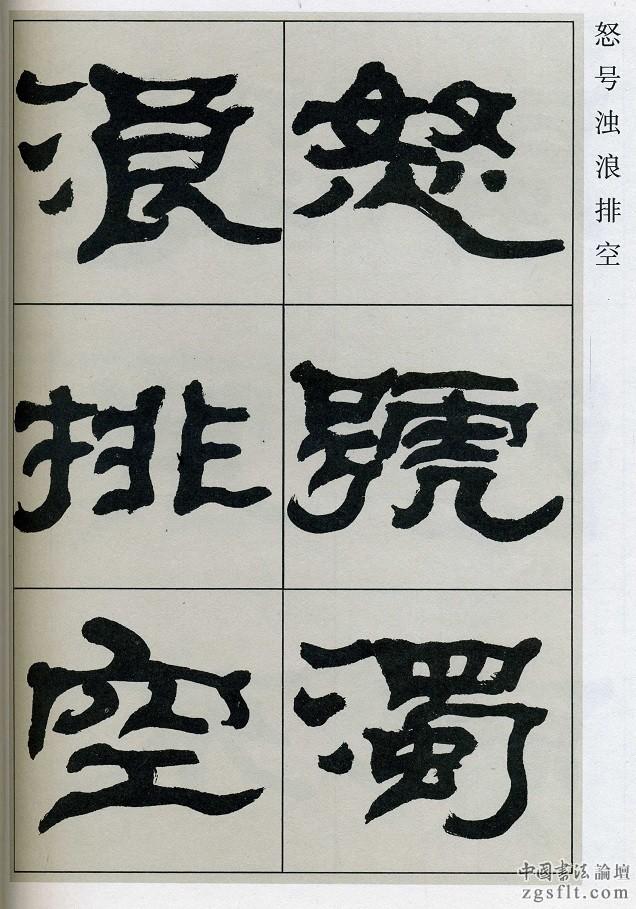 怒号浊浪排空
怒號濁
浪排空
中国书法論壇
zgsflt.com